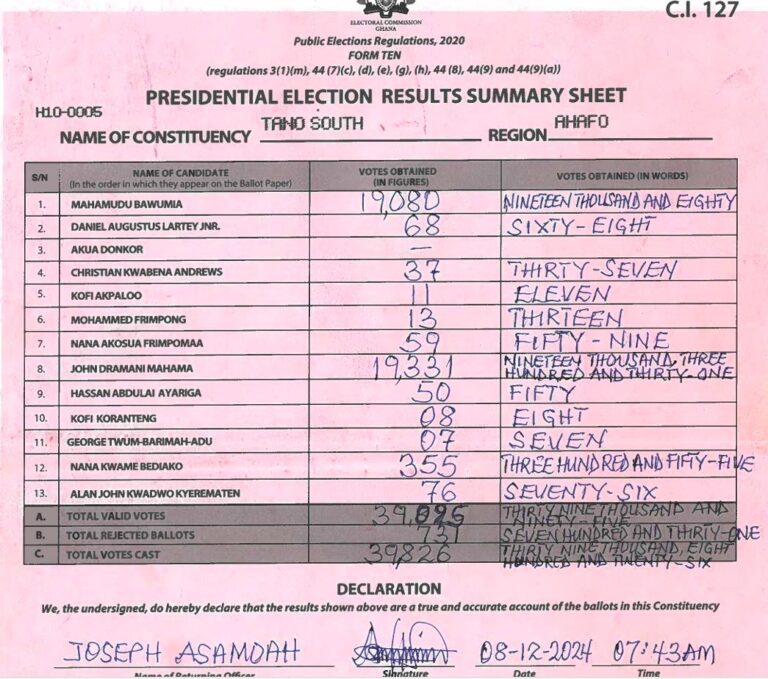 C.I. 127
ELECTORAL COMMISSION
GHANA
Public Elections Regulations, 2020
FORM TEN
(regulations 3(1)(m), 44 (7)(c), (d), (e), (g), (h), 44 (8), 44(9) and 44(9)(a))
PRESIDENTIAL ELECTION RESULTS SUMMARY SHEET
H10-0005
NAME OF CONSTITUENCY TANO SOUTH REGION AHAFO
S/N NAME OF CANDIDATE (In the order in which they appear on the Ballot Paper) VOTES OBTAINED (IN FIGURES) VOTES OBTAINED (IN WORDS)
1. MAHAMUDU BAWUMIA 19,080 NINETEEN THOUSAND AND EIGHTY
2. DANIEL AUGUSTUS LARTEY JNR. 68 SIXTY-EIGHT
3. AKUA DONKOR —
4. CHRISTIAN KWABENA ANDREWS 37 THIRTY-SEVEN
5. KOFI AKPALOO 11 ELEVEN
6. MOHAMMED FRIMPONG 13 THIRTEEN
7. NANA AKOSUA FRIMPOMAA 59 FIFTY-NINE
8. JOHN DRAMANI MAHAMA 19,331 NINETEEN THOUSAND, THREE HUNDRED AND THIRTY-ONE
9. HASSAN ABDULAI AYARIGA 50 FIFTY
10. KOFI KORANTENG 08 EIGHT
11. GEORGE TWUM-BARIMAH-ADU 07 SEVEN
12. NANA KWAME BEDIAKO 355 THREE HUNDRED AND FIFTY-FIVE
13. ALAN JOHN KWADWO KYEREMATEN 76 SEVENTY-SIX
A. TOTAL VALID VOTES 39,095 THIRTY NINE THOUSAND AND NINETY-FIVE
B. TOTAL REJECTED BALLOTS 731 SEVEN HUNDRED AND THIRTY-ONE
C. TOTAL VOTES CAST 39,826 THIRTY NINE THOUSAND, EIGHT HUNDRED AND TWENTY-SIX
DECLARATION
We, the undersigned, do hereby declare that the results shown above are a true and accurate account of the ballots in this Constituency
JOSEPH ASAMOAH 08-12-2024 07:43AM
Name of Returning Officer Signature Date Time